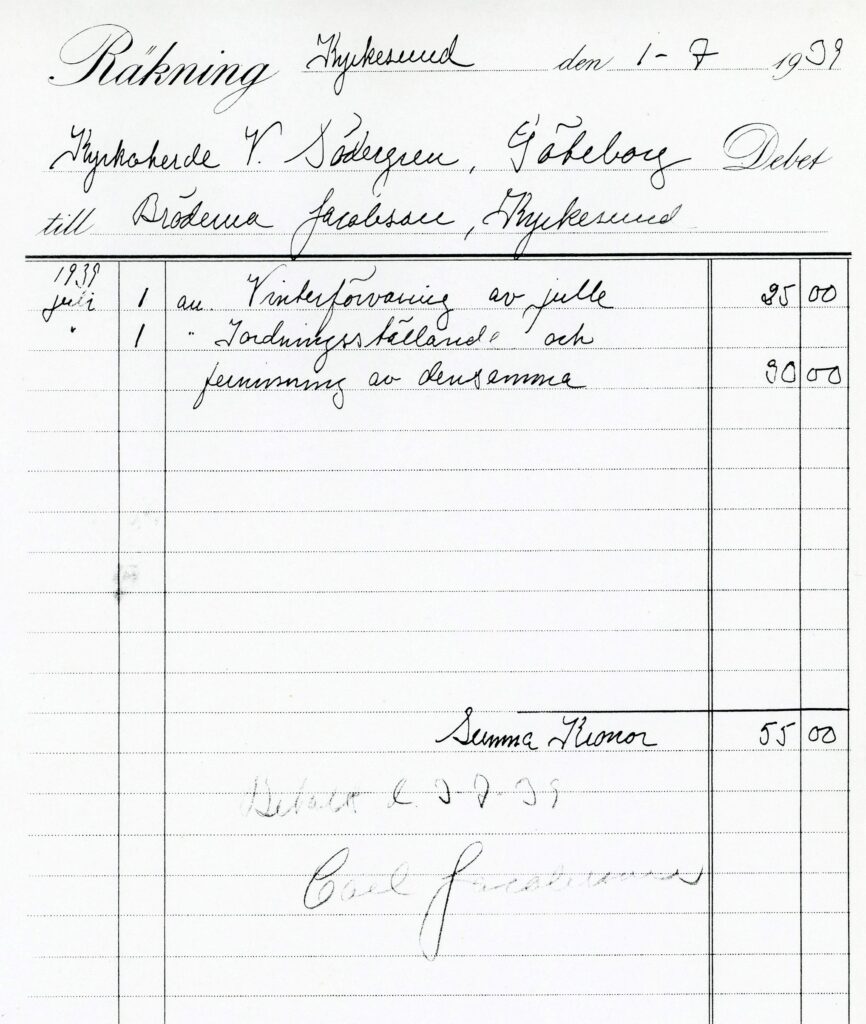 Räkning Kyrkesund den 1-7 1939
Kyrkoherde V. Södergren, Göteborg Debet
till Bröderna Jacobson, Kyrkesund
1939
juli 1 an. Vinterförvaring av julle 25 00
" 1 " Iordningsställande och
fernissning av densamma 30 00
Summa Kronor 55 00
Betalt d. 3-7-39
Carl